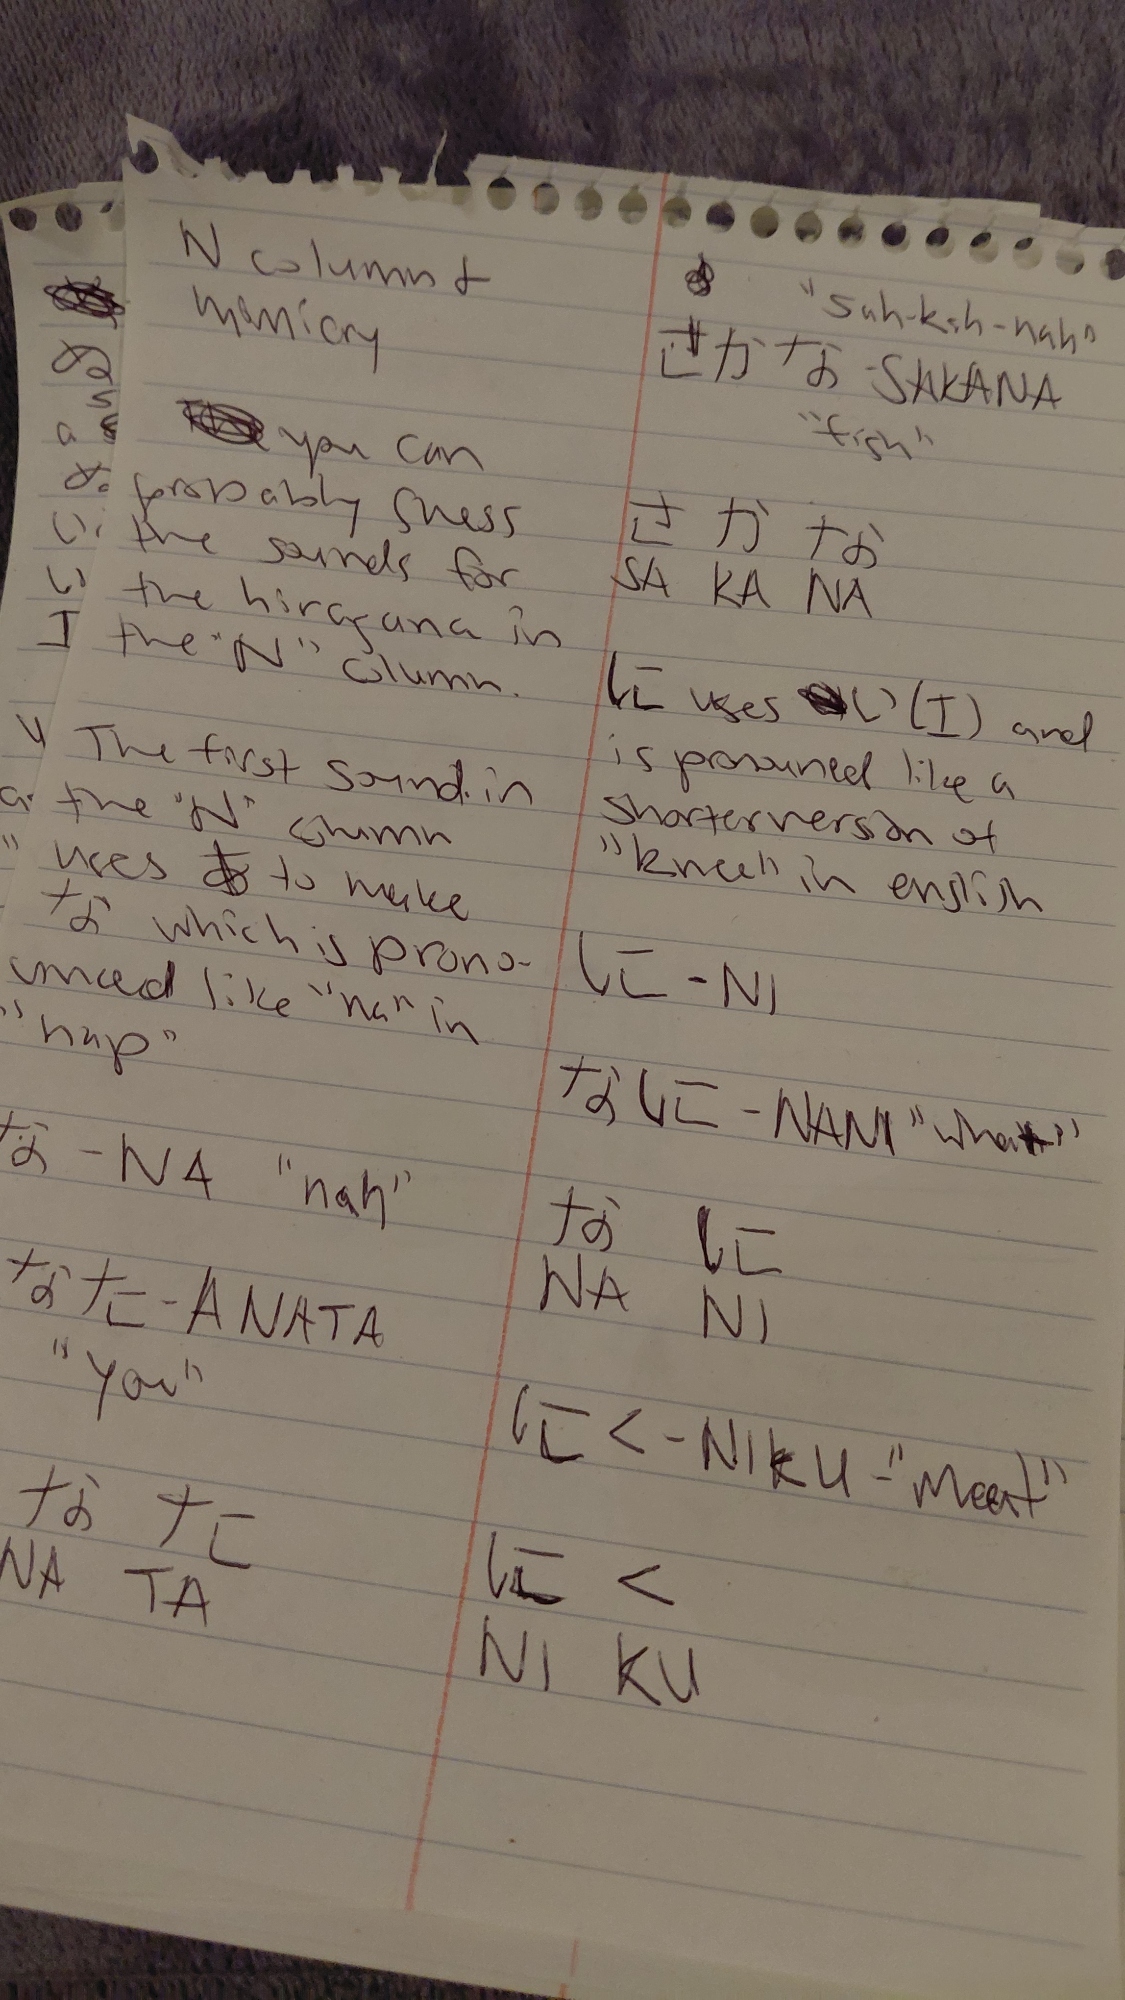 N column &
mimicry
you can
probably guess
the sounds for
the hiragana in
the "N" column.
The first sound in
the "N" column
uses あ to make
な which is prono-
unced like "na" in
"nap"
な - NA "nah"
なた - ANATA
"you"
な た
NA TA
"sah-kah-nah"
さかな - SAKANA
"fish"
さ か な
SA KA NA
に uses い (I) and
is pronounced like a
shorter version of
"knee" in english
に - NI
なに - NANI "what"
な に
NA NI
にく - NIKU - "Meat"
に く
NI KU